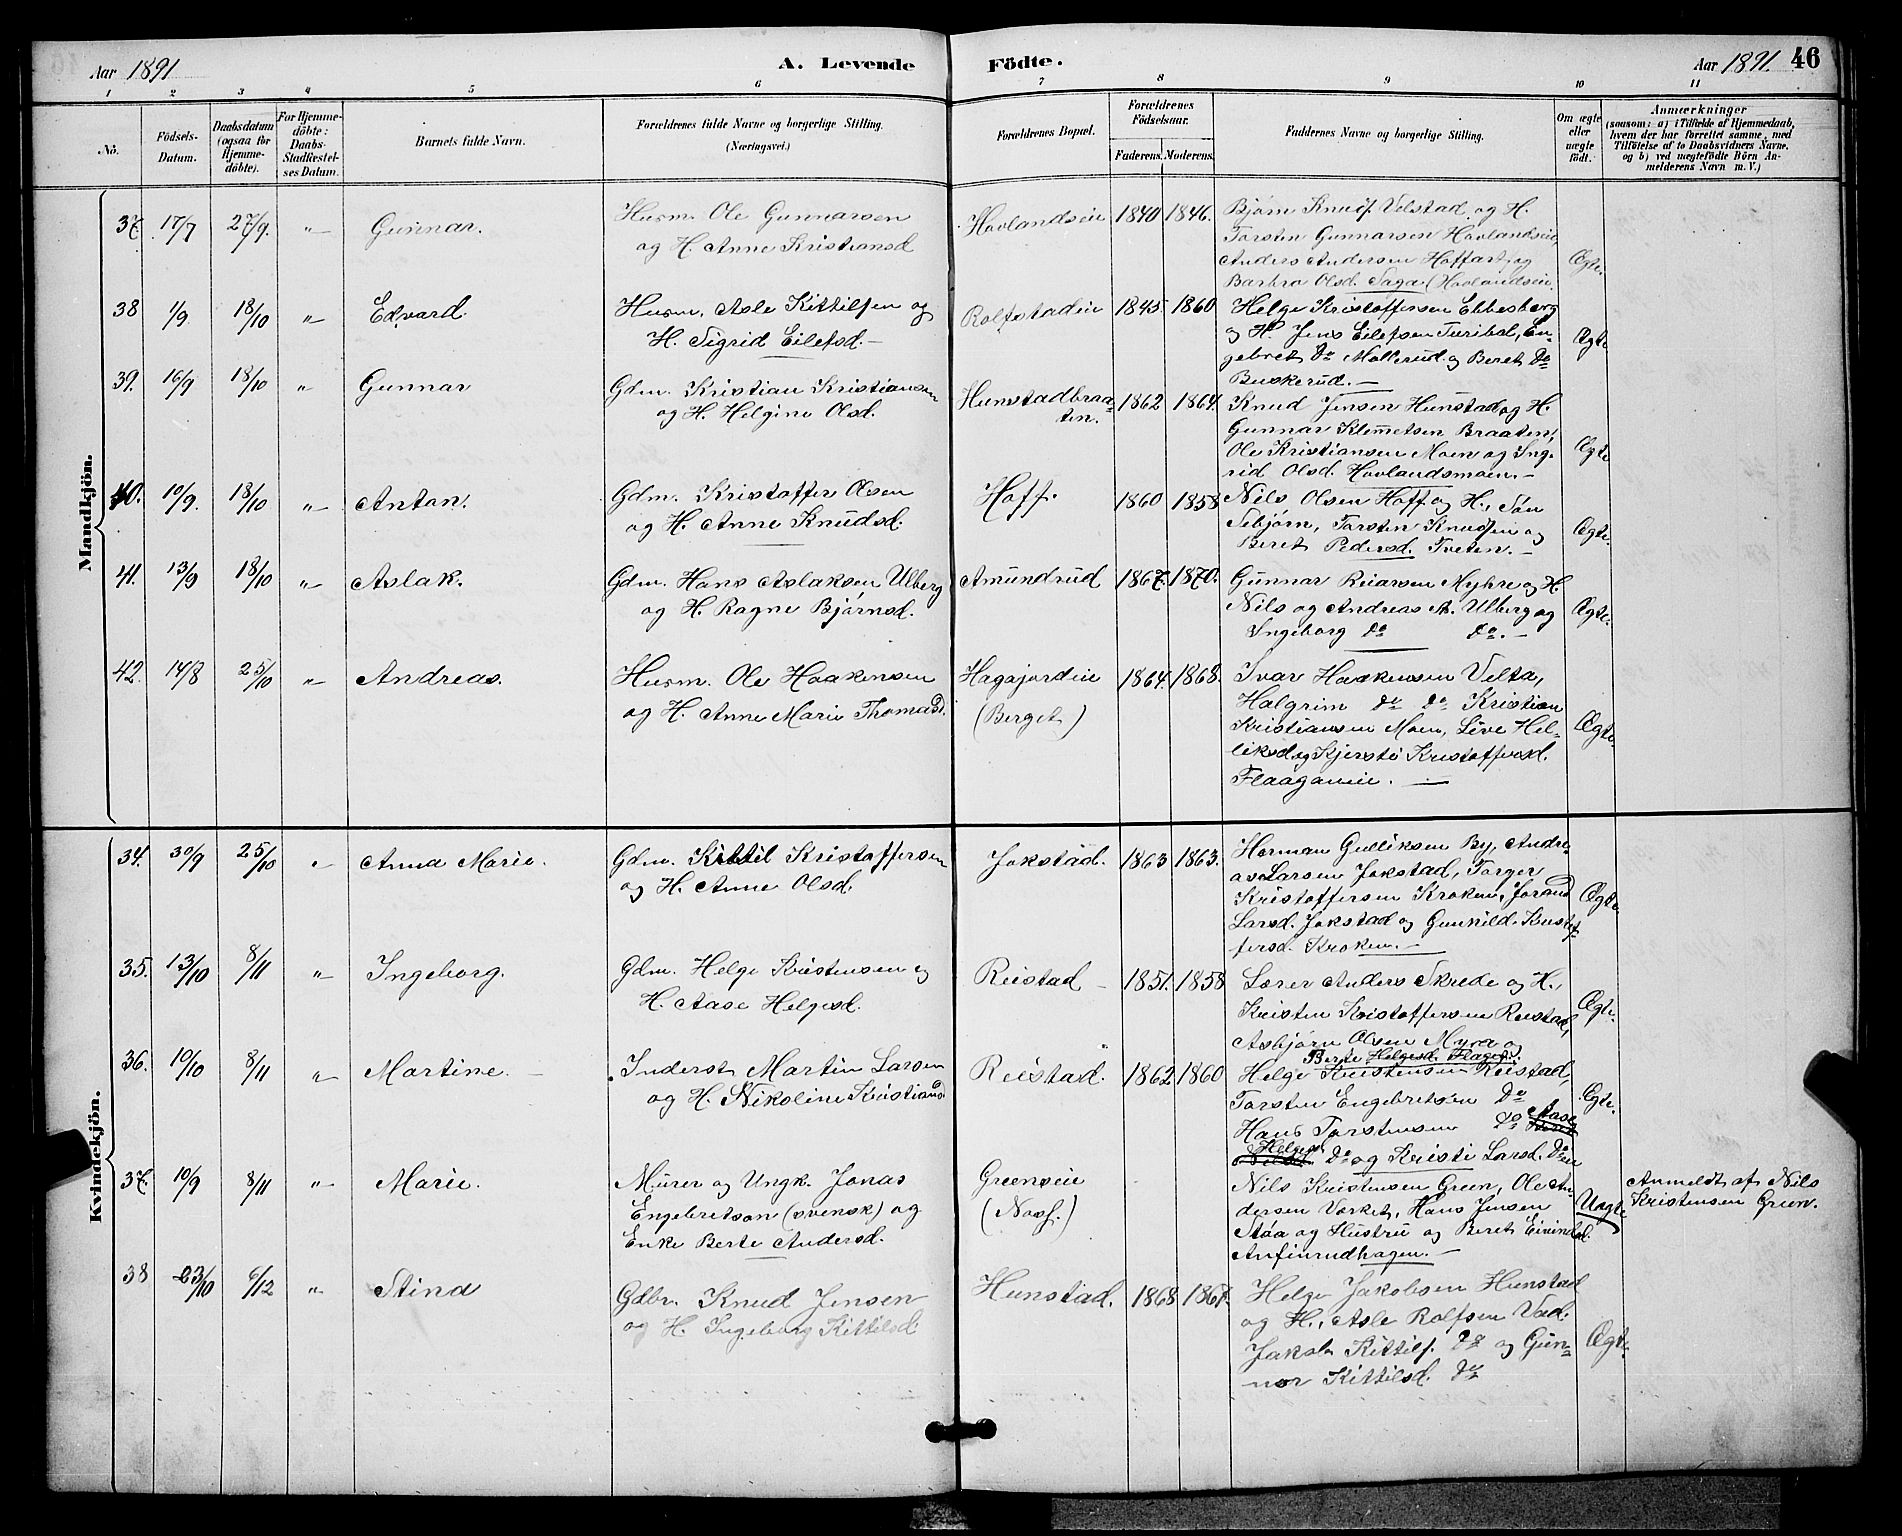 Aar 1891
A. Levende Födte.
Aar 1891. 46
1 2 3 4 5 6 7 8 9 10 11
No.
Födsels-Datum.
Daabsdatum (ogsaa for Hjemme-döbte).
For Hjemme-döbte: Daabs-Stadfæstel-ses Datum.
Barnets fulde Navn.
Forældrenes fulde Navne og borgerlige Stilling.
(Næringsvei.)
Forældrenes Bopæl.
Forældrenes Födselsaar.
Faderens. Moderens.
Faddernes Navne og borgerlige Stilling.
Om ægte eller uægte födt.
Anmærkninger
(saasom: a) i Tilfælde af Hjemmedaab, hvem der har forrettet samme, med Tilföielse af to Daabsvidners Navne, og b) ved uægtefödte Börn An-melderens Navn m. V.)
Mandkjön.
37. 17/7 27/9. " Gunnar.
Husm. Ole Gunnarsen
og H. Anne Kristiansd
Hovlandseie 1840 1846.
Bjørn Knudf. Velstad og H.
Torsten Gunnarsen Hovlandseie,
Anders Andersen Hoffart og
Barbra Olsd. Saga (Hovlandseie.
Ægte.
38 1/9. 18/10 " Edvard.
Husm. Asle Kittilsen og
H. Sigrid Eilefsd. —
Rolfstadeie 1845. 1860
Helge Kristoffersen Ebbesberg
og H. Jens Eilefsen Turibal, En-
gebret do Mollerud og Beret do
Buskerud. —
Ægte
39. 16/9 18/10 " Gunnar
Gdm. Kristian Kristiansen
og H. Helgine Olsd.
Hunstadbraa-
ten. 1862 1864.
Knud Jensen Hunstad og H.
Gunnar Klemetsen Braaten,
Ole Kristiansen Moen og Ing-
rid Olsd. Hovlandsmoen. —
Ægte
40. 10/9. 18/10 " Anton.
Gdm. Kristoffer Olsen
og H. Anne Knudsd.
Hoff. 1860 1858
Nils Olsen Hoff og H., Søn
Sebjørn, Torsten Knudsen og
Beret Pedersd. Tveten. —
Ægte.
41. 13/9 18/10 " Aslak.
Gdm. Hans Aslaksen Ulberg
og H. Ragne Bjørnsd.
Amundrud 1867. 1870.
Gunnar Reiarsen Myhre og H.
Nils og Andreas A. Ulberg og
Ingeborg do do. —
Ægte.
42. 14/8 25/10 " Andreas.
Husm. Ole Haakensen
og H. Anne Marie Thomasd.
Hagajordeie
(Berget) 1864. 1868.
Ivar Haakensen Velta,
Halgrim do do Kristian
Kristiansen Moen, Live Hel-
liksd. og Kjersti Kristoffersd.
Flaaganeie. —
Ægte.
Kvindekjön.
34. 30/9 25/10 " Anna Marie.
Gdm. Kittil Kristoffersen
og H. Anne Olsd.
Jokstad. 1863 1863.
Herman Gulliksen By, Andre-
as Larsen Jokstad, Torger
Kristoffersen Kroken, Jorand
Larsd. Jokstad og Gunhild Kristof-
fersd. Kroken. —
Ægte
35. 13/10 8/11 " Ingeborg.
Gdm. Helge Kristensen og
H. Aase Helgesd.
Reistad 1851. 1858
Lærer Anders Skrede og H.,
Kristen Kristoffersen Reistad,
Asbjørn Olsen Myra og
Berte Helgesd. Flagen.
Ægte.
36. 10/10 8/11 " Martine. —
Inderst Martin Larsen
og H. Nikoline Kristiansd
Reistad. 1862 1860
Helge Kristensen Reistad,
Torsten Engebretsen do
Hans Torstensen do Aase
Helgesd. do og Kristi Larsd. do
Ægte.
37. 10/9 8/11 " Marie.
Murer og Ungk. Jonas
Engebretson (svensk) og
Enke Berte Andersd.
Greenseie
(Nosf.)
Nils Kristensen Green, Ole An-
dersen Vorket, Hans Jensen
Støa og Hustru og Beret Eivindsd.
Anfinrudhagen. —
Uægte
Anmeldt af Nils
Kristensen Green.
38 23/10 6/12 " Stina
Gdbr. Knud Jensen
og H. Ingeborg Kittilsd.
Hunstad. 1868 1867.
Helge Jakobsen Hunstad
og H., Asle Rolfsen Vad.
Jakob Kittilf. do og Gun-
nor Kittilsd. do
Ægte.